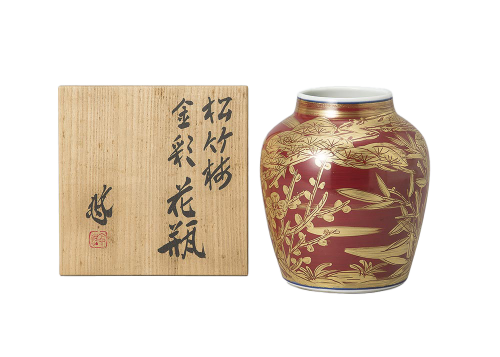 松竹梅
金彩
花瓶